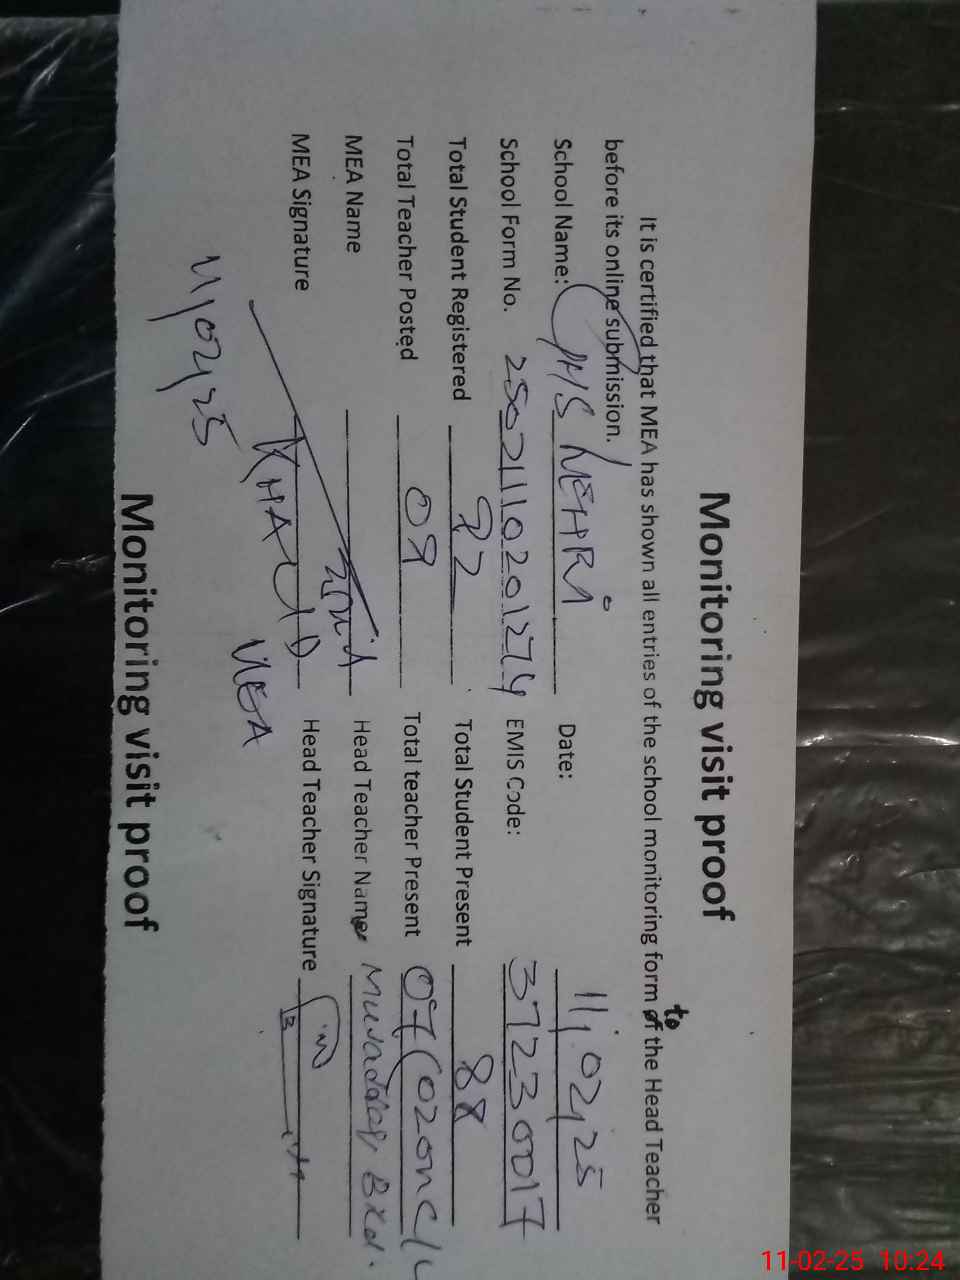 Monitoring visit proof
It is certified that MEA has shown all entries of the school monitoring form to the Head Teacher
before its online submission.
School Name: GHS NEHRI Date: 11,02,25
School Form No. EMIS Code: 37230017
Total Student Registered 92 Total Student Present 88
Total Teacher Posted 09 Total teacher Present 07 (02 on c/
MEA Name Head Teacher Name
MEA Signature KHALID Head Teacher Signature
MEA
11,02,25
Monitoring visit proof
11-02-25 10:24